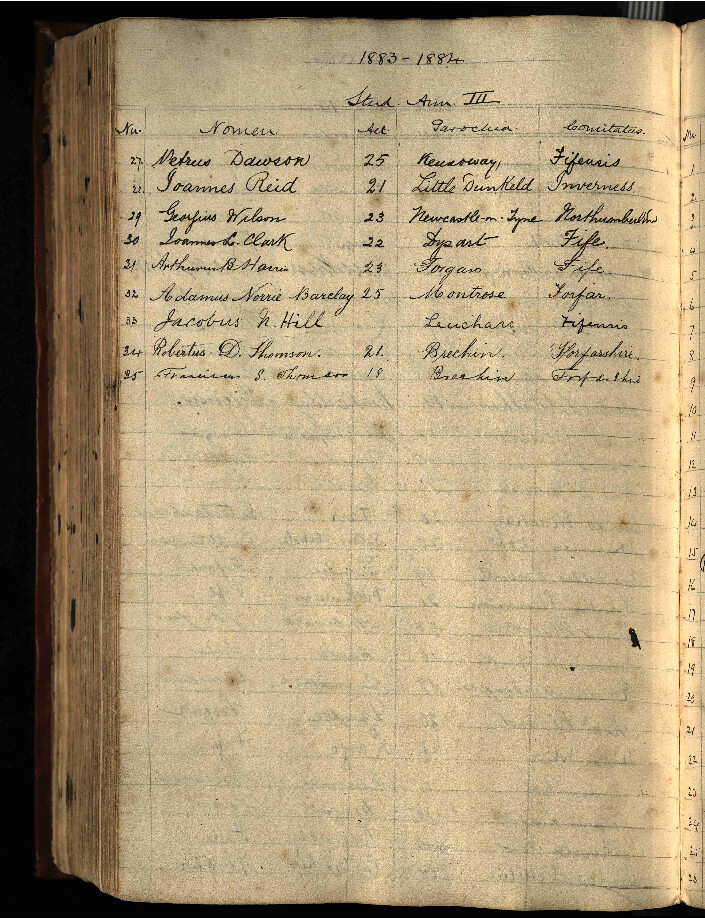 1883-1884
Stud. Ann. III
Nu. Nomen Aet. Parochia. Comitatus. Nu.
27. Petrus Dawson 25 Kennoway, Fifensis
28. Joannes Reid 21 Little Dunkeld Inverness
29 Georgius Wilson 23 Newcastle-on-Tyne
30 Joannes L. Clark 22 Dysart Fife.
31 Arthurus B. Harris 23 Forgan Fife.
32 Adamus Norrie Barclay 25 Montrose Forfar.
33 Jacobus N. Hill Leuchars Fifensis
34 Robertus D. Thomson. 21. Brechin. Forfarshire.
35 Franciscus S. Thomson 18 Brechin
1
2
3
4
5
6
7
8
9
10
11
12
13
14
15
16
17
18
19
20
21
22
23
24
25